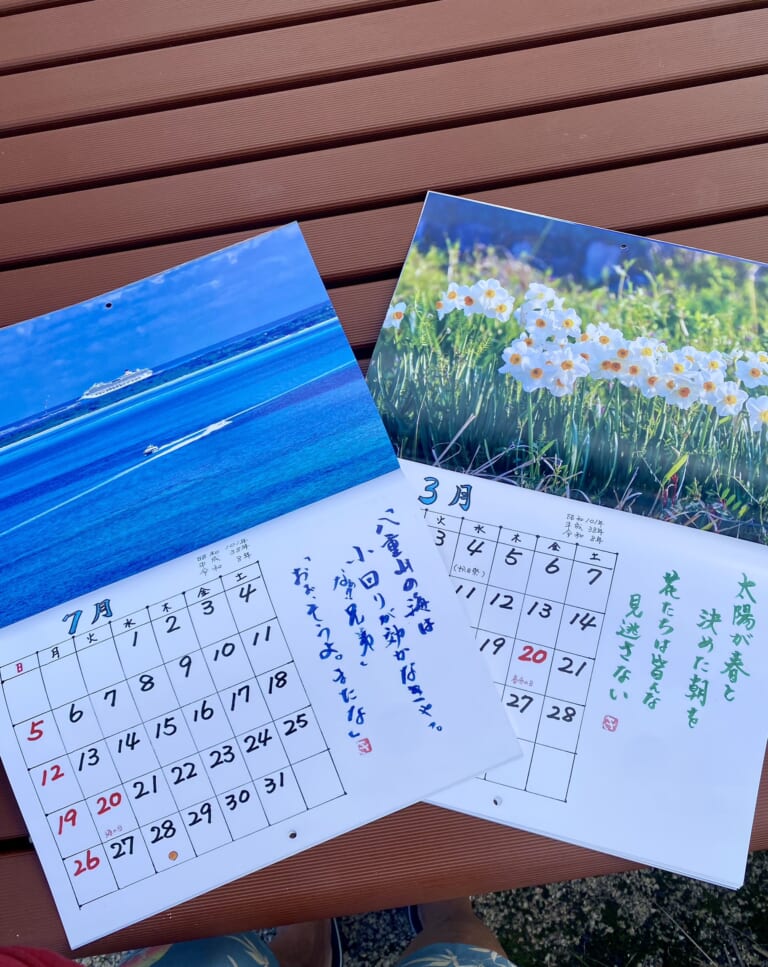 昭和101年
平成38年
令和8年
7月
日 月 火 水 木 金 土
1 2 3 4
5 6 7 8 9 10 11
12 13 14 15 16 17 18
19 20 21 22 23 24 25
海の日
26 27 28 29 30 31
「八重山の海は
小回りが効かな
兄弟」
そうよ。
3月
昭和101年
平成38年
令和8年
火 水 木 金 土
3 4 5 6 7
11 12 13 14
19 20 21
春分の日
27 28
太陽が春と
決めた朝を
花たちは皆んな
見逃さない